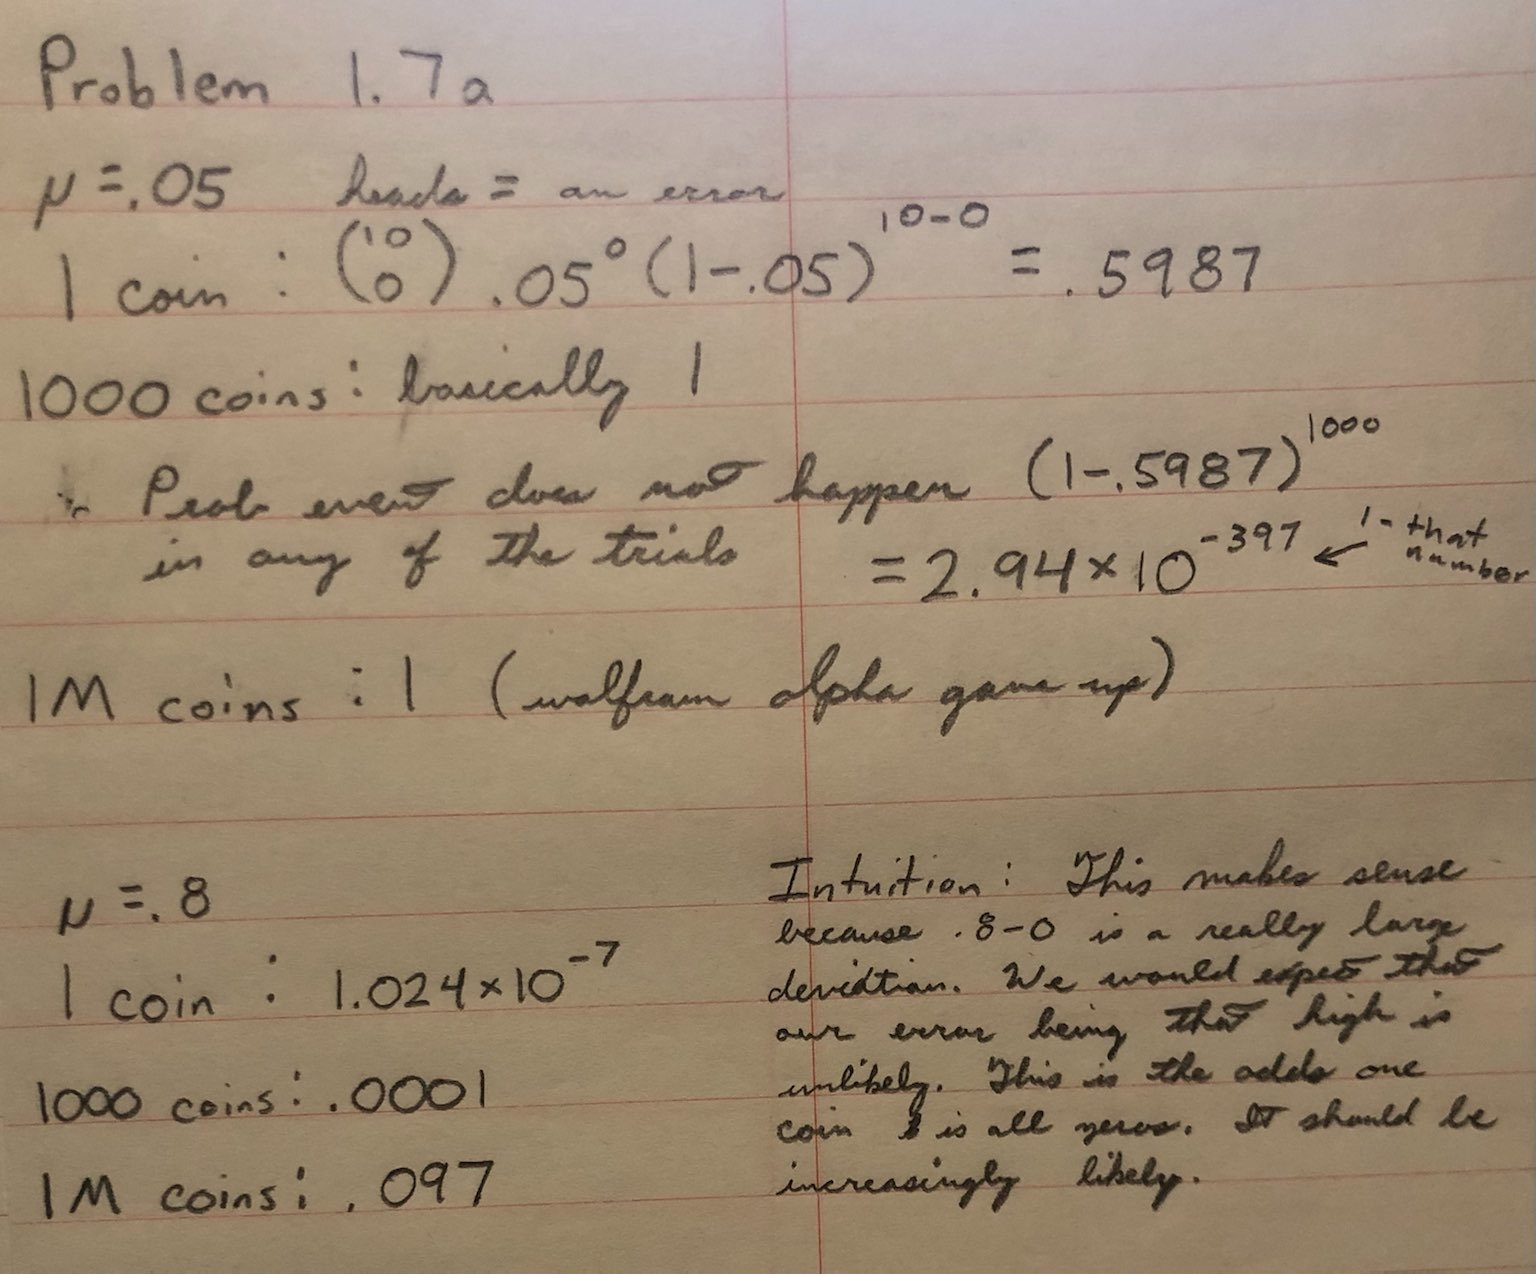 Problem 1.7a
μ = .05 heads = an error
1 coin : (10 0) .05⁰ (1-.05)¹⁰⁻⁰ = .5987
1000 coins : basically 1
Prob event does not happen (1-.5987)¹⁰⁰⁰
in any of the trials = 2.94 × 10⁻³⁹⁷ ← 1 - that number
1M coins : 1 (wolfram alpha gave up)
μ = .8
1 coin : 1.024 × 10⁻⁷
1000 coins : .0001
1M coins : .097
Intuition : This makes sense
because .8-0 is a really large
deviation. We would expect that
our error being that high is
unlikely. This is the odds one
coin is all zeros. It should be
increasingly likely.